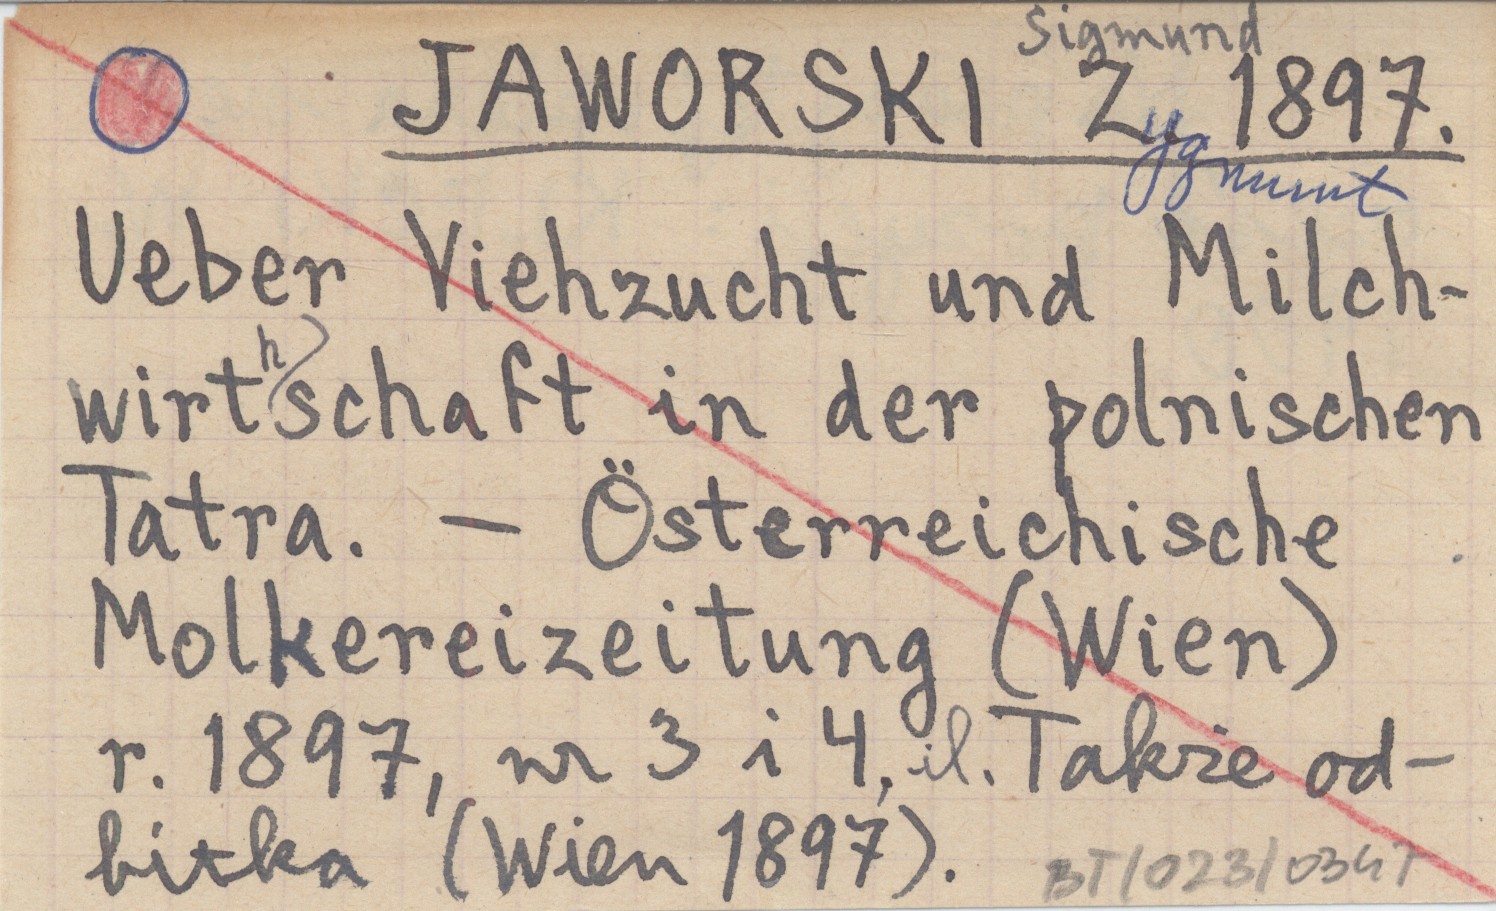 Sigmund
JAWORSKI Z. 1897.
ygmunt
Ueber Viehzucht und Milch-
wirthschaft in der polnischen
Tatra. — Österreichische
Molkereizeitung (Wien)
r. 1897, nr 3 i 4, il. Także od-
bitka (Wien 1897).
BT/023/034T